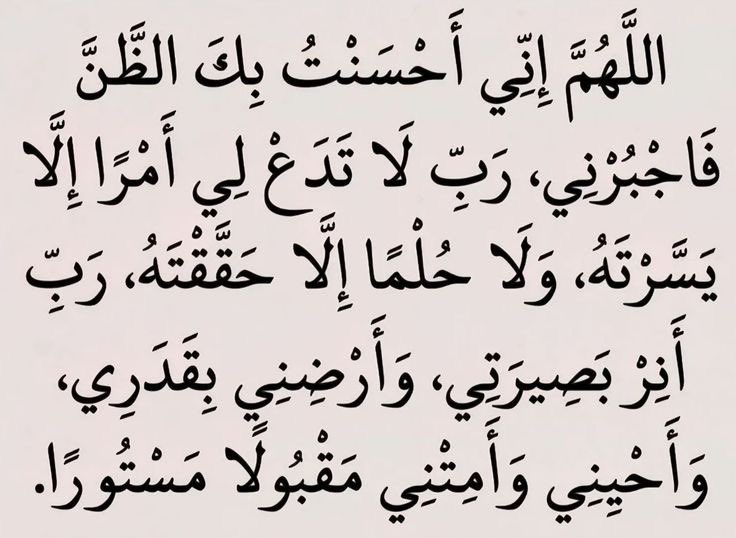 اللَّهُمَّ إِنِّي أَحْسَنْتُ بِكَ الظَّنَّ
فَاجْبُرْنِي، رَبِّ لَا تَدَعْ لِي أَمْرًا إِلَّا
يَسَّرْتَهُ، وَلَا حُلْمًا إِلَّا حَقَّقْتَهُ، رَبِّ
أَنِرْ بَصِيرَتِي، وَأَرْضِنِي بِقَدَرِي،
وَأَحْيِنِي وَأَمِتْنِي مَقْبُولًا مَسْتُورًا.